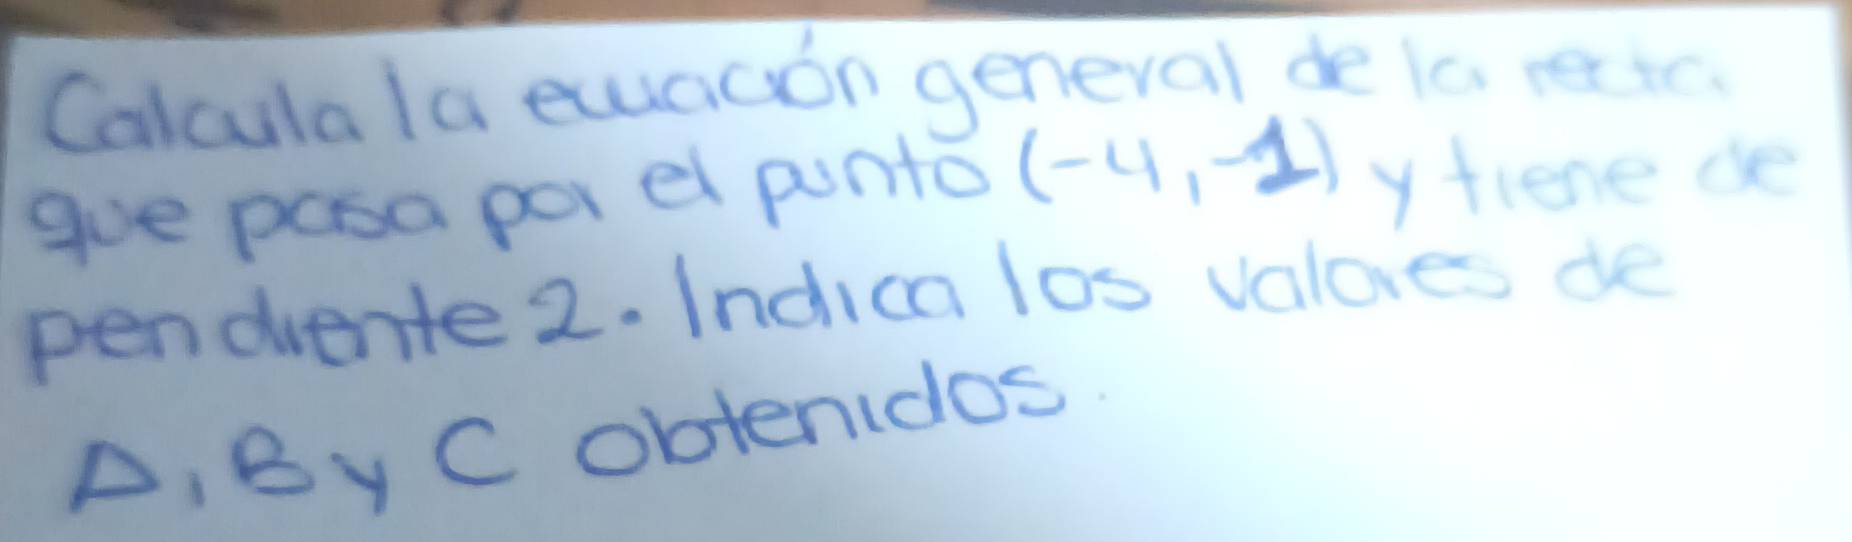 Calcula la ecuación general de la recta
que pasa por el punto (-4,-1) y tiene de
pendiente 2. Indica los valores de
A, B y C obtenidos.